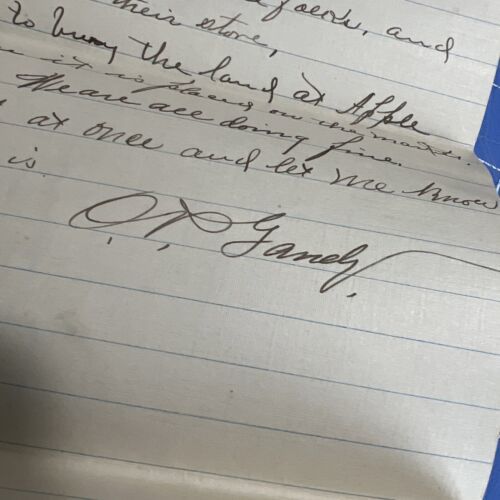 goods, and
their store,
to buy the land at Apple
it is placed on the market.
We are all doing fine.
at once and let me know
is.
O. P. Gandy,